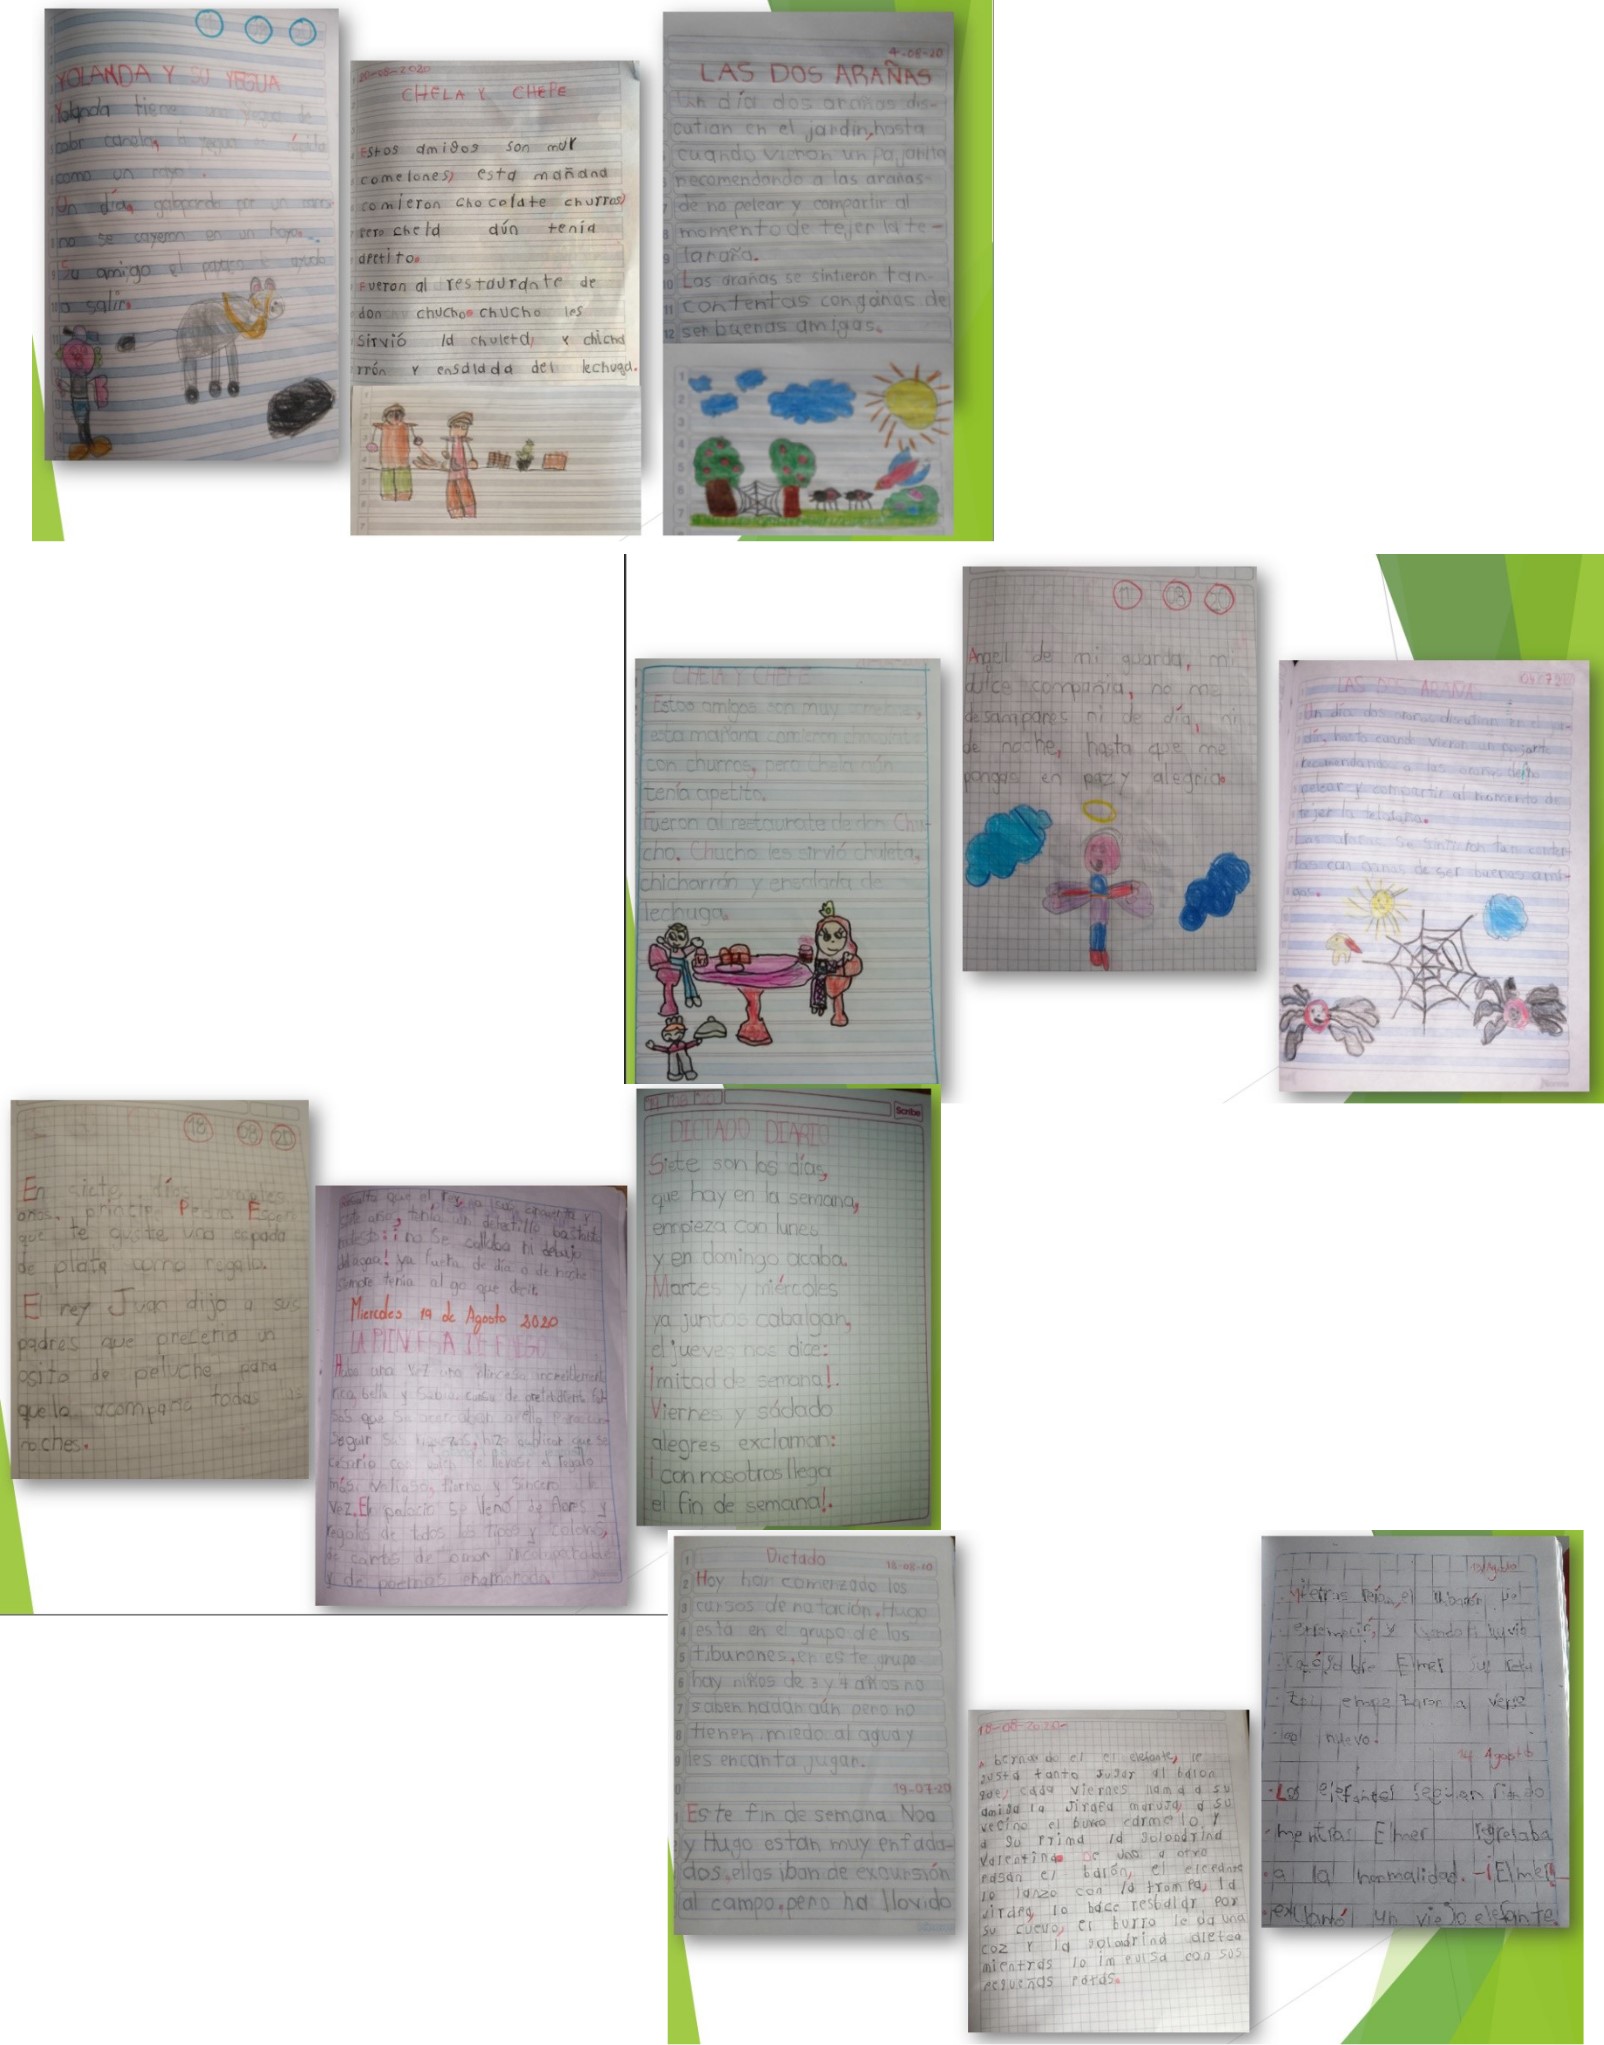 11 08 20
YOLANDA Y SU YEGUA
Yolanda tiene una yegua de
color canela, la yegua es rápida
como un rayo.
Un día, galopando por un cami-
no se cayeron en un hoyo.
Su amigo el payaso le ayudo
a salir.
20-08-2020
CHELA Y CHEPE
Estos amigos son muy
comelones, esta mañana
comieron chocolate churros,
pero chela aún tenía
apetito.
Fueron al restaurante de
don chucho. chucho les
sirvió la chuleta, y chicha
rrón y ensalada del lechuga.
4-08-20
LAS DOS ARAÑAS
Un día dos arañas dis-
cutian en el jardín, hasta
cuando vieron un pajarito
recomendando a las arañas
de no pelear y compartir al
momento de tejer la te-
laraña.
Las arañas se sintieron tan
contentas con ganas de
ser buenas amigas.
CHELA Y CHEPE
Estos amigos son muy
esta mañana comieron chocolate
con churros, pero Chela aún
tenía apetito.
Fueron al restaurate de don Chu-
cho. Chucho les sirvió chuleta,
chicharrón y ensalada de
lechuga.
11 08 20
Angel de mi guarda, mi
dulce compañia, no me
desampares ni de día, ni
de noche, hasta que me
pongas en paz y alegria.
LAS DOS ARAÑAS
Un día dos discutian en el jar-
dín, hasta cuand vieron un
recomendando a las
pelear y compartir al momento de
tejer la telaraña.
Las arañas se sintieron tan conten-
tas con ganas de ser buenas ami-
gas.
18 08 20
En siete días cumples
años, principe Pedro. Espero
que te guste una espada
de plata como regalo.
El rey Juan dijo a sus
padres que preferia un
osito de peluche para
que lo acompañe todas las
noches.
que el rey, ya
año, tenía un defectillo bastante
molesto: ¡no se callaba ni debajo
del agua! ya fuera de día o de noche
siempre tenía algo que decir.
Miercoles 19 de Agosto 2020
LA PRINCESA DE FUEGO
Hubo una vez una princesa increiblemente
rica, bella y sabia. cansa de pretendientes fal
sos que se acercaban a ella para con
seguir sus riquezas, hizo publicar que se
casaria con quien le llevase el regalo
más valioso, tierno y sincero a la
vez. El palacio se llenó de flores y
regalos de todos los tipos y colores,
de cartas de amor incomparables
y de poemas enamorado.
Scribe
DICTADO DIARIO
Siete son los días,
que hay en la semana,
empieza con lunes
y en domingo acaba.
Martes y miércoles
ya juntos cabalgan,
el jueves nos dice:
¡mitad de semana!.
Viernes y sádado
alegres exclaman:
¡con nosotros llega
el fin de semana!.
Dictado
18-08-20
Hoy han comenzado los
cursos de natación, Hugo
está en el grupo de los
tiburones, en este grupo
hay niños de 3 y 4 años no
saben nadan aún pero no
tienen miedo al agua y
les encanta jugar.
19-07-20
Este fin de semana Noa
y Hugo estan muy enfada-
dos, ellos iban de excursión
al campo, pero ha llovido
18-08-2020
A bernardo el elefante, le
gusta tanto jugar al balon
que, cada viernes llama a su
amiga la jirafa maruja, a su
vecino el burro carmelo, y
a su prima la golondrina
Valentina. De uno a otro
pasan el balón, el elefante
lo lanzo con la trompa, la
jirafa, lo hace resbalar por
su cuello, el burro le da una
coz y la golondrina aletea
mientras lo impulsa con sus
pequeñas patas.
Elmer
empezaron a verse
de nuevo.
14 Agosto
Los elefantes seguian riendo
mientras Elmer regresaba
a la normalidad. -¡Elmer
exclamó un viejo elefante.